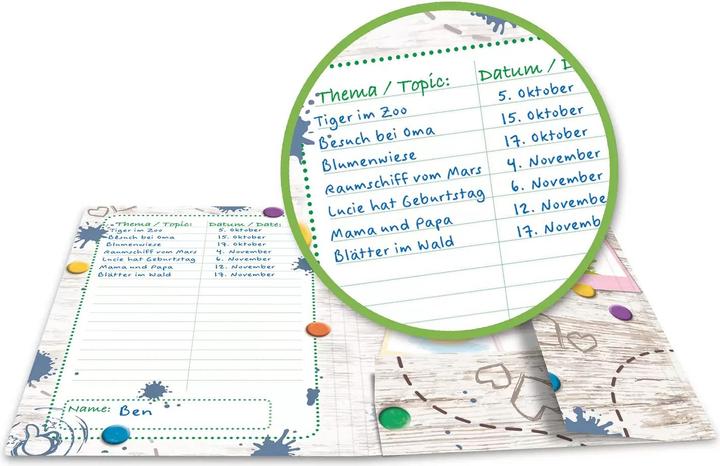 Thema / Topic: Datum / D
Tiger im Zoo 5. Oktober
Besuch bei Oma 15. Oktober
Blumenwiese 17. Oktober
Raumschiff vom Mars 4. November
Lucie hat Geburtstag 6. November
Mama und Papa 12. November
Blätter im Wald 17. Novemb
Thema / Topic: Datum / Date:
Tiger im Zoo 5. Oktober
Besuch bei Oma 15. Oktober
Blumenwiese 17. Oktober
Raumschiff vom Mars 4. November
Lucie hat Geburtstag 6. November
Mama und Papa 12. November
Blätter im Wald 17. November
Name: Ben